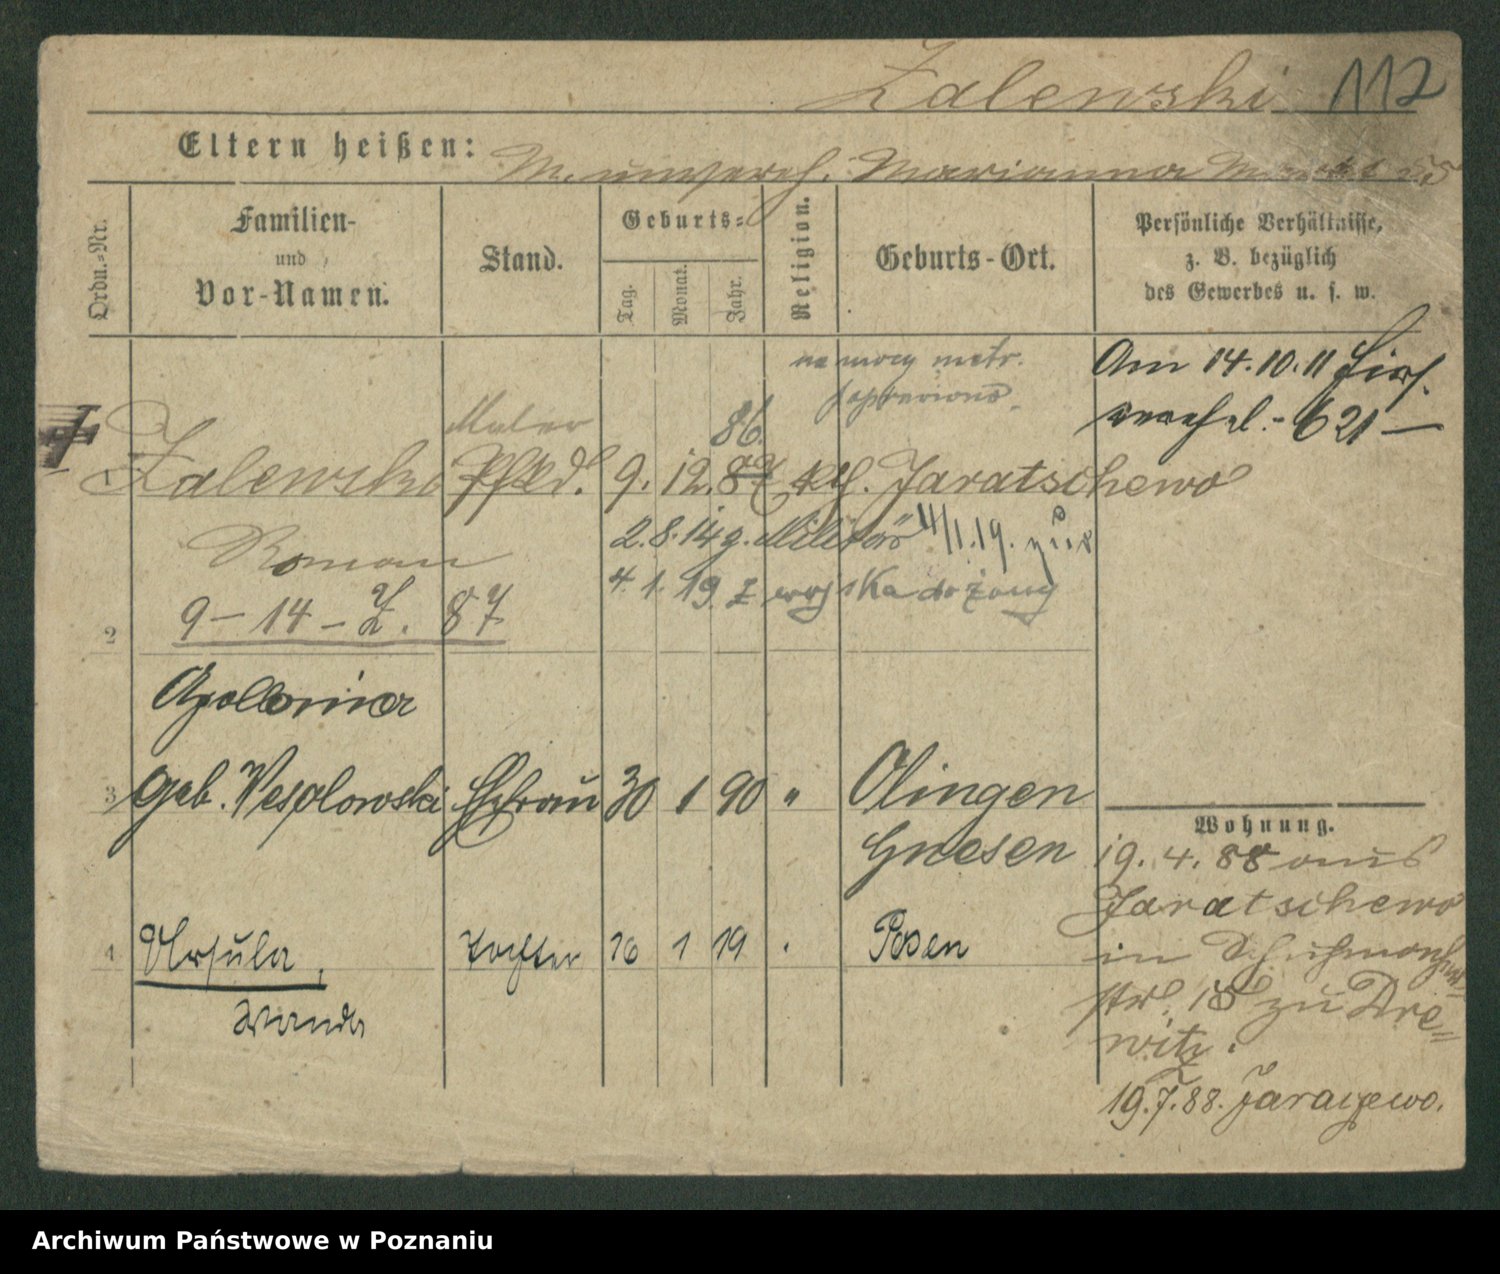 Zalewski 112
Eltern heißen: M. unvereh. Marianna
Ordn.-Nr.
Familien-
und
Vor-Namen.
Stand.
Geburts-
Tag.
Monat.
Jahr.
Religion.
Geburts-Ort.
Persönliche Verhältnisse,
z. B. bezüglich
des Gewerbes u. s. w.
na mocy metr.
Am 14.10.11
621 —
Maler
86.
1 Zalewski Pfkd. 9. 12. 87 kth. Jaratschewo
2.8.14 z. Militär 4/1.19. zur
Roman
4. 1. 19. z wojska do żony
2 9 – 14 – Z. 87
Apollonia
3 geb. Wesolowski Ehefrau 30 1 90 " Olingen
Gnesen
4 Ursula, Tochter 16 1 19 . Posen
Wanda
Wohnung.
19. 4. 88 aus
Jaratschewo
in Schuhmacher-
str. 18 zu Dre=
witz.
19.7.88. Jaraczewo.
Archiwum Państwowe w Poznaniu